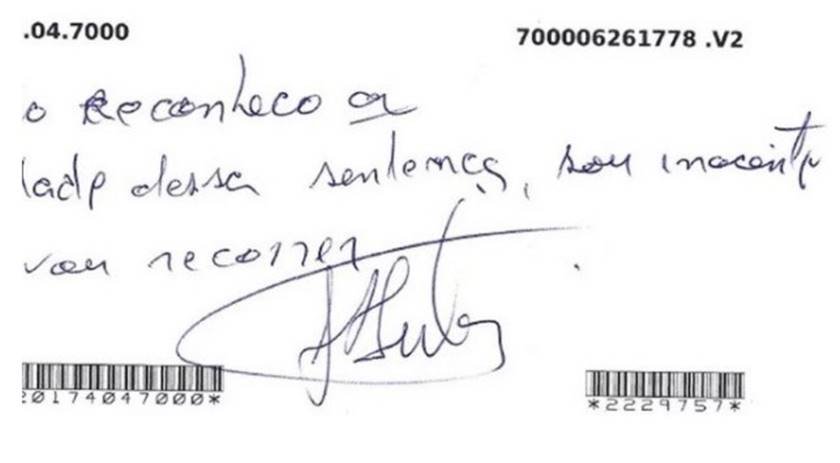 .04.7000
700006261778 .V2
o Reconheco a
dade dessa sentença, sou inocente
vou recorrer
20174047000*
*2229757*